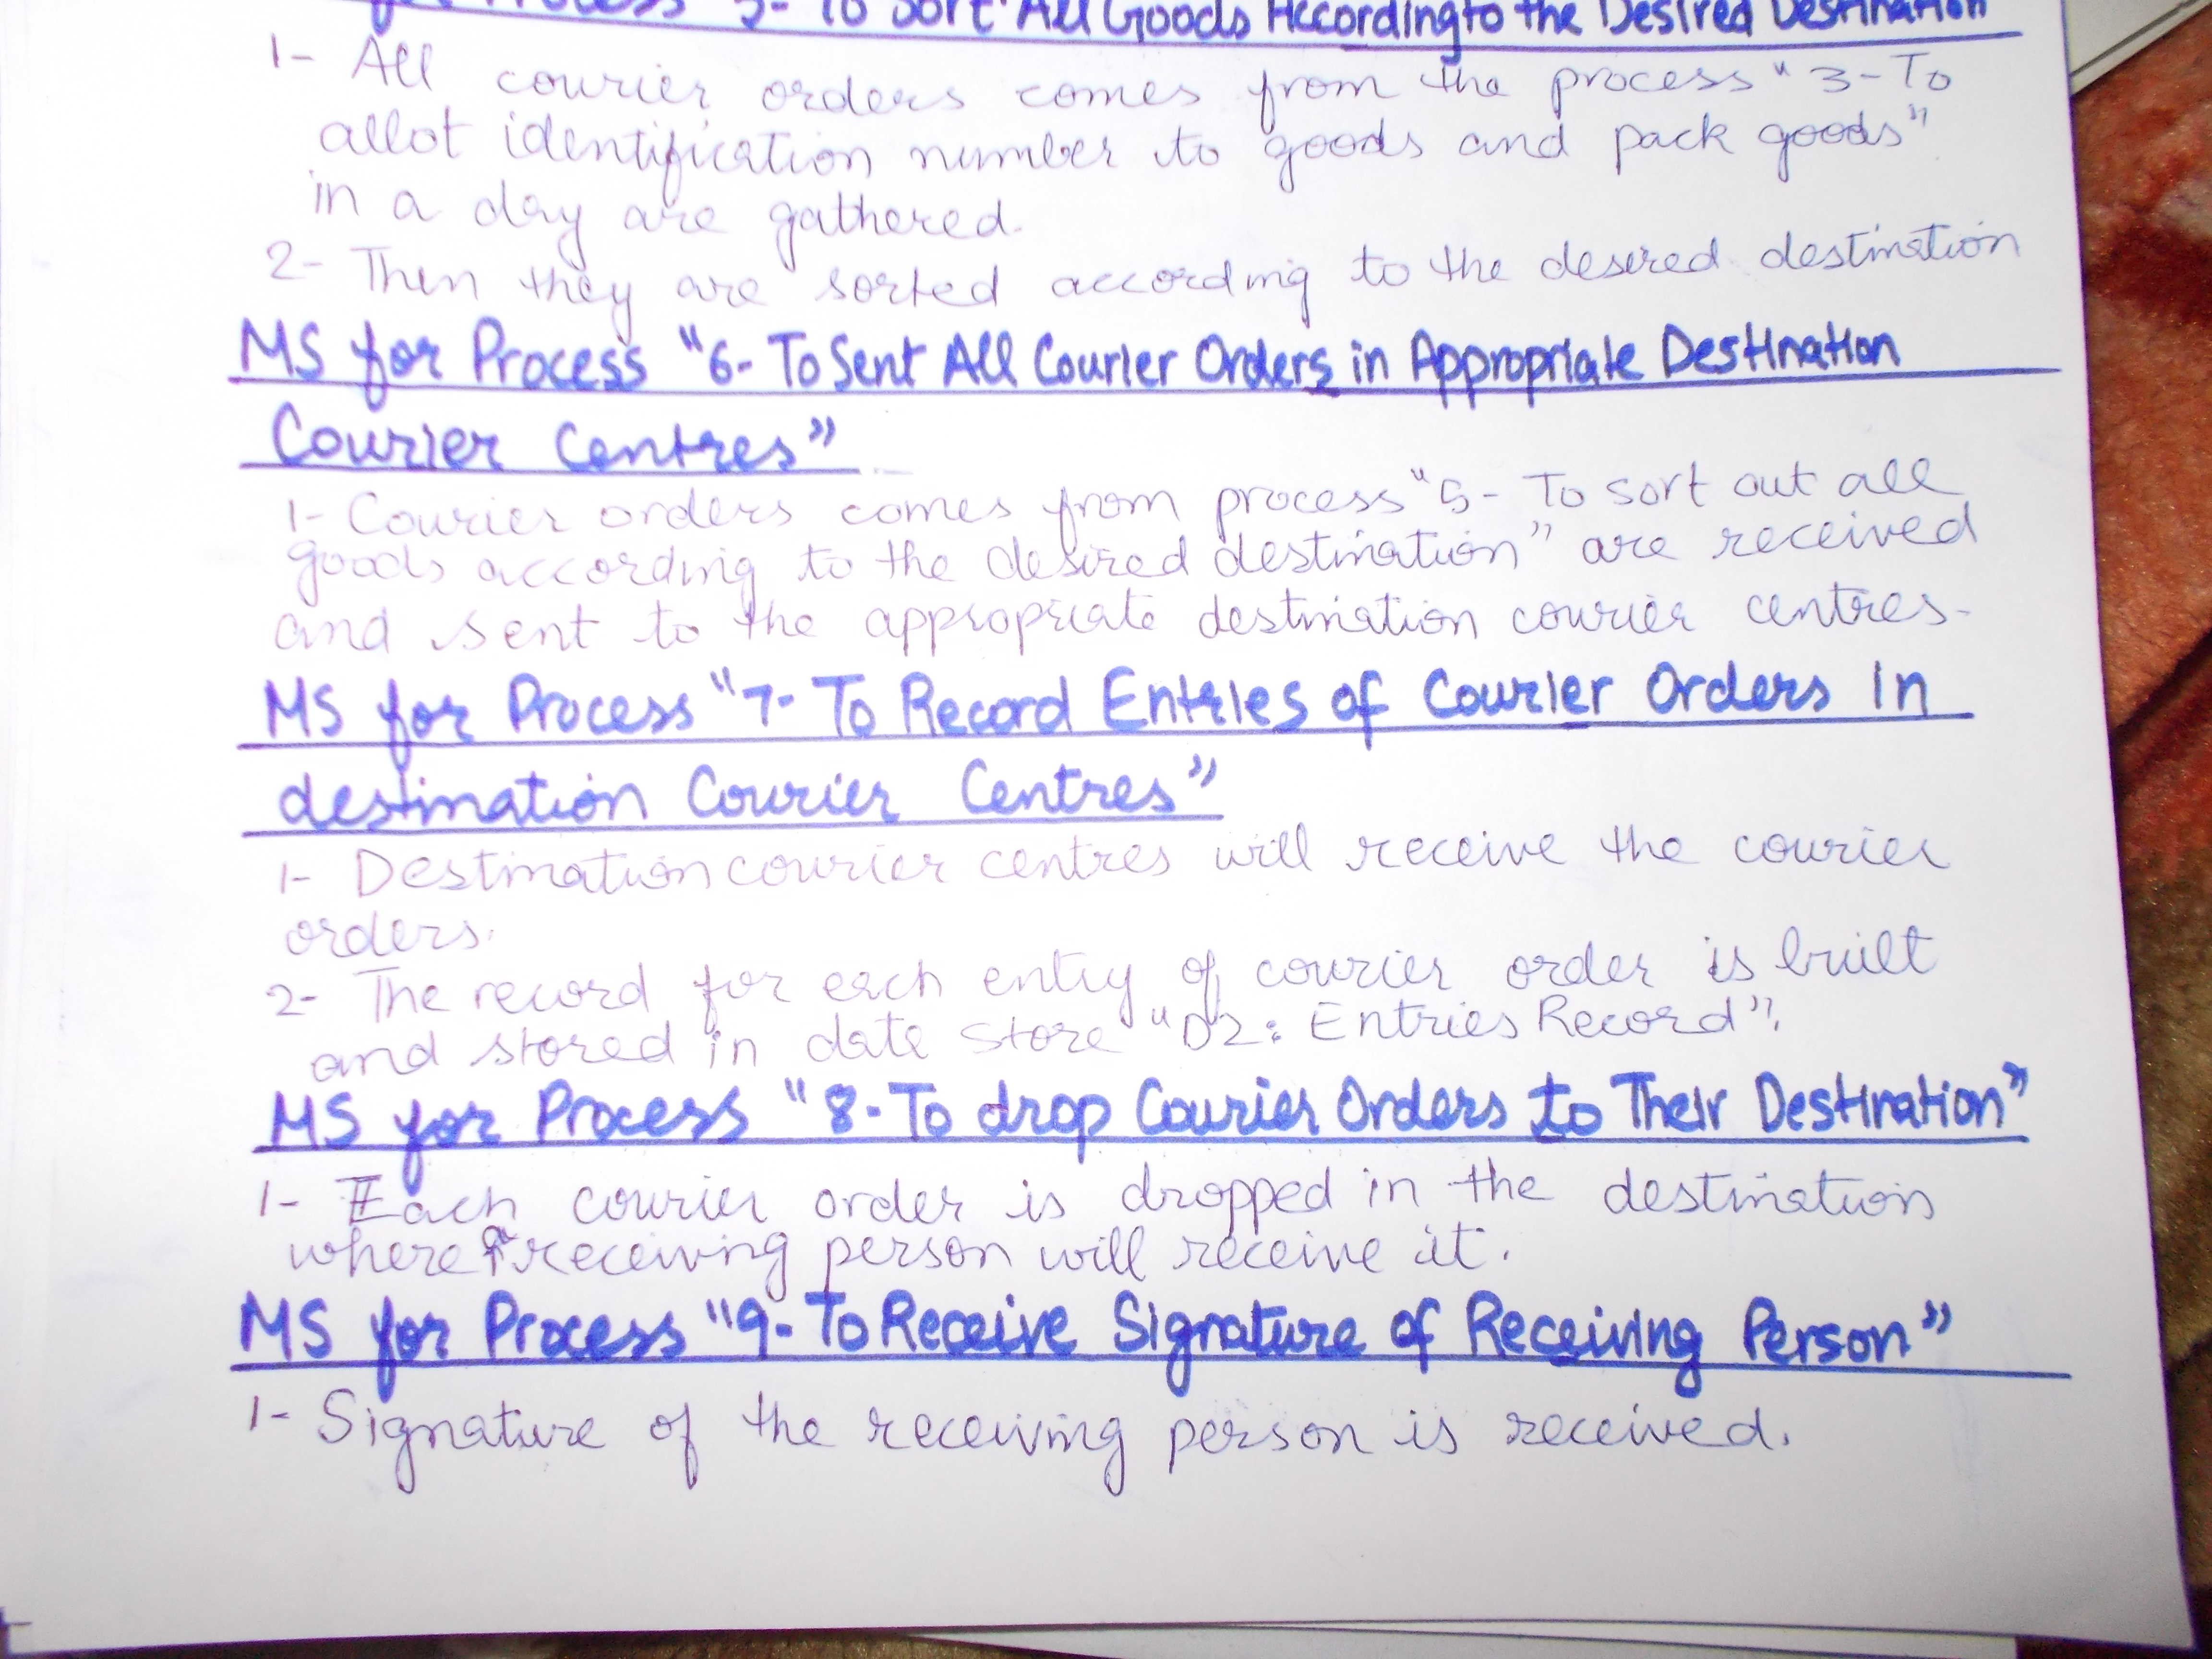 for Process "5- To Sort All Goods According to the Desired Destination
1- All courier orders comes from the process "3-To
allot identification number to goods and pack goods"
in a day are gathered.
2- Then they are sorted according to the desired destination
MS for Process "6- To Sent All Courier Orders in Appropriate Destination
Courier Centres"
1- Courier orders comes from process "5- To sort out all
goods according to the desired destination" are received
and sent to the appropriate destination courier centres.
MS for Process "7- To Record Entries of Courier Orders In
destination Courier Centres"
1- Destination courier centres will receive the courier
orders.
2- The record for each entry of courier order is built
and stored in date store "D2: Entries Record".
MS for Process "8-To drop Courier Orders to Their Destination"
1- Each courier order is dropped in the destination
where receiving person will receive it.
MS for Process "9- To Receive Signature of Receiving Person"
1- Signature of the receiving person is received.